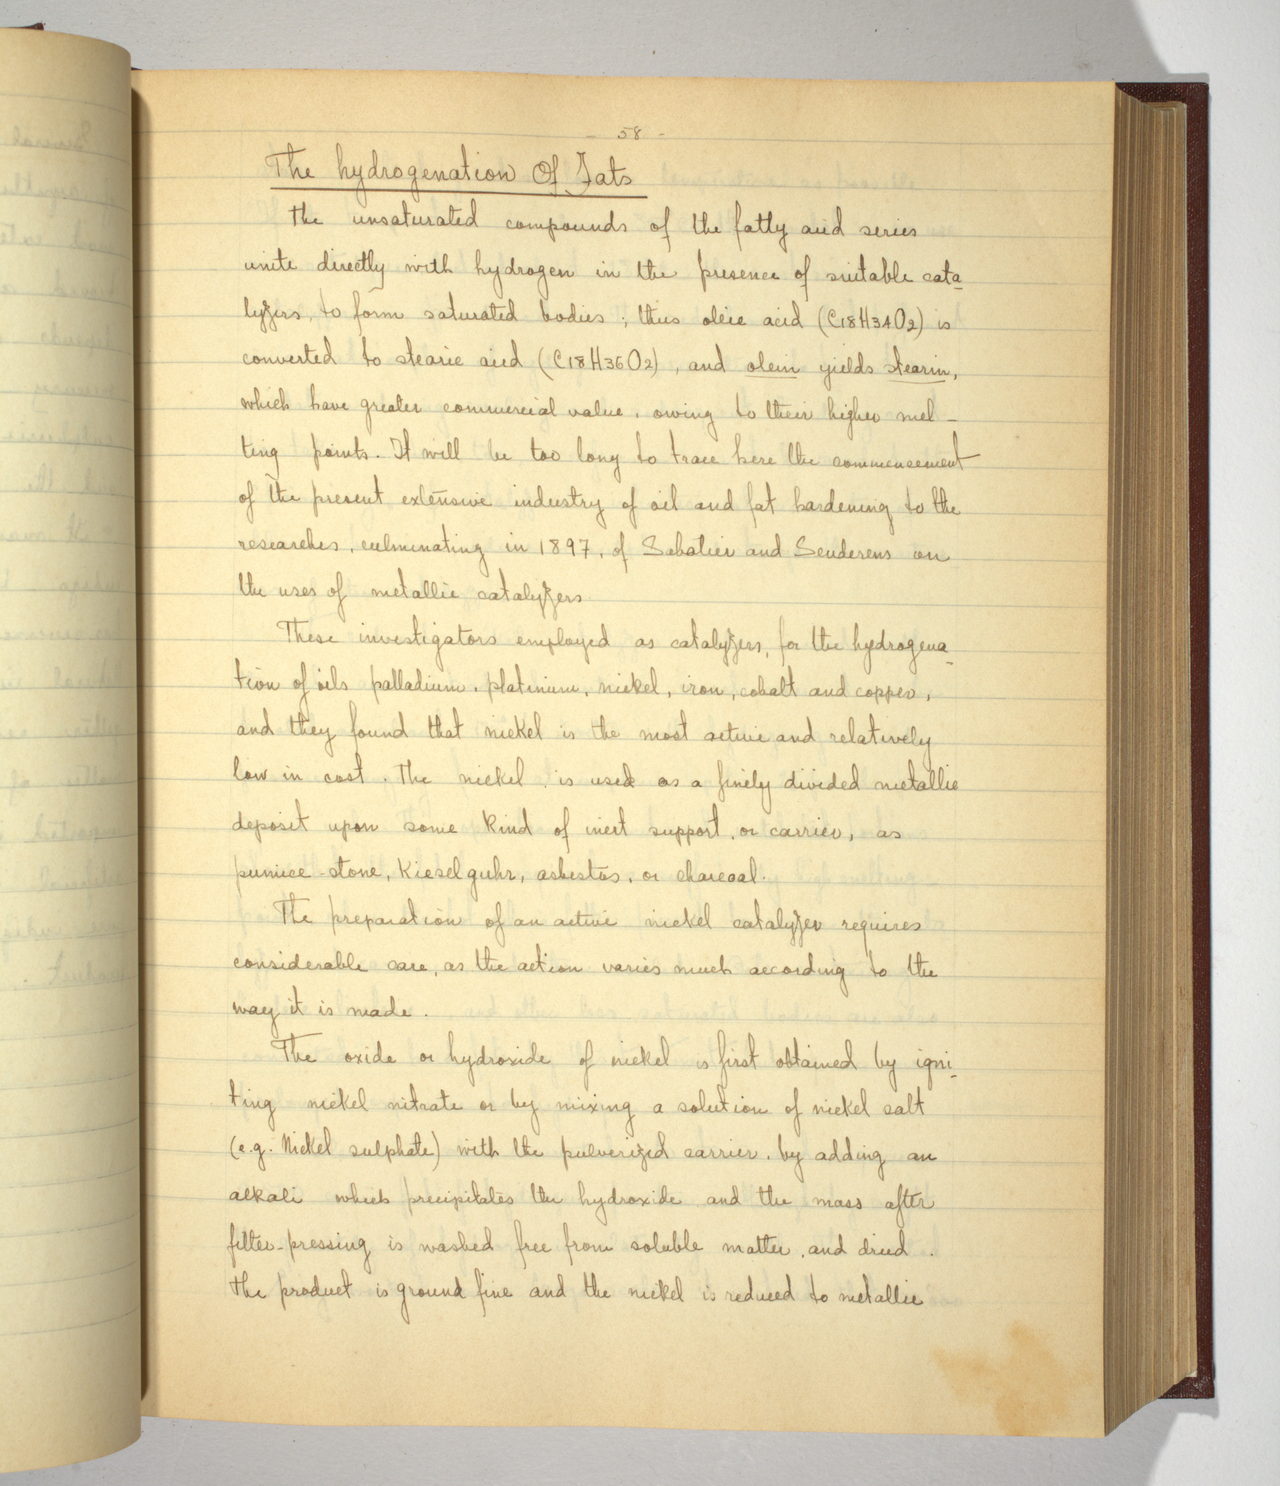 - 58 -
The hydrogenation Of Fats
The unsaturated compounds of the fatty acid series
unite directly with hydrogen in the presence of suitable cata-
lyzers, to form saturated bodies; thus oleic acid (C18H34O2) is
converted to stearic acid (C18H36O2), and olein yields stearin,
which have greater commercial value, owing to their higher mel-
ting points. It will be too long to trace here the commencement
of the present extensive industry of oil and fat hardening to the
researches, culminating in 1897, of Sabatier and Senderens on
the uses of metallic catalyzers.
These investigators employed as catalyzers, for the hydrogena-
tion of oils palladium, platinum, nickel, iron, cobalt and copper,
and they found that nickel is the most active and relatively
low in cost. The nickel is used as a finely divided metallic
deposit upon some kind of inert support, or carrier, as
pumice-stone, Kieselguhr, asbestos, or charcoal.
The preparation of an active nickel catalyzer requires
considerable care, as the action varies much according to the
way it is made.
The oxide or hydroxide of nickel is first obtained by igni-
ting nickel nitrate or by mixing a solution of nickel salt
(e.g. Nickel sulphate) with the pulverized carrier, by adding an
alkali which precipitates the hydroxide and the mass after
filter-pressing is washed free from soluble matter, and dried.
The product is ground fine and the nickel is reduced to metallic